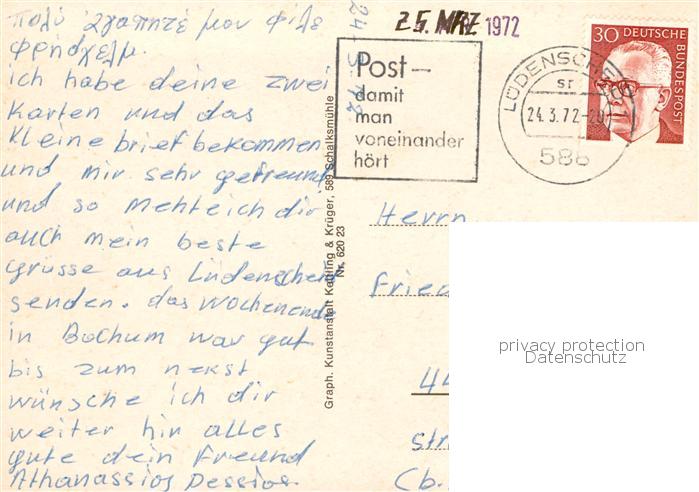 πολύ ἀγαπητέ μου φίλε
ich habe deine zwei
Karten und das
kleine brief bekommen
und mir sehr gefreund
und so mehte ich dir
auch mein beste
grüsse aus Lüdenscheid
senden. das wochenende
in Bochum war gut
bis zum nekst
wünsche ich dir
weiter hin alles
gute dein Freund
Athanassios Dessios.
24-3-72
Graph. Kunstanstalt Kettling & Krüger, 589 Schalksmühle
Nr. 620 23
25. MRZ 1972
Post-
damit
man
voneinander
hört
LÜDENSCHEID
sr
24.3.72-20
588
30 DEUTSCHE
BUNDESPOST
Herrn
Fried
44
Str
Cb.
privacy protection
Datenschutz